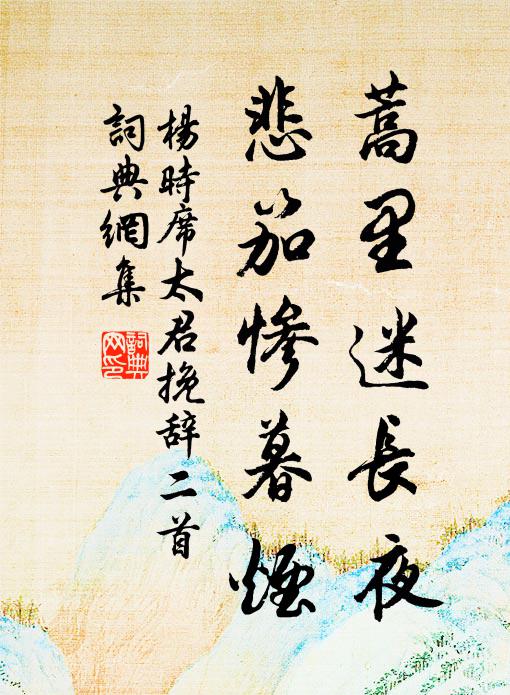 蒿里迷長夜
悲笳慘暮煙
楊時席太君挽辞二首
詞典網集
詞典网印